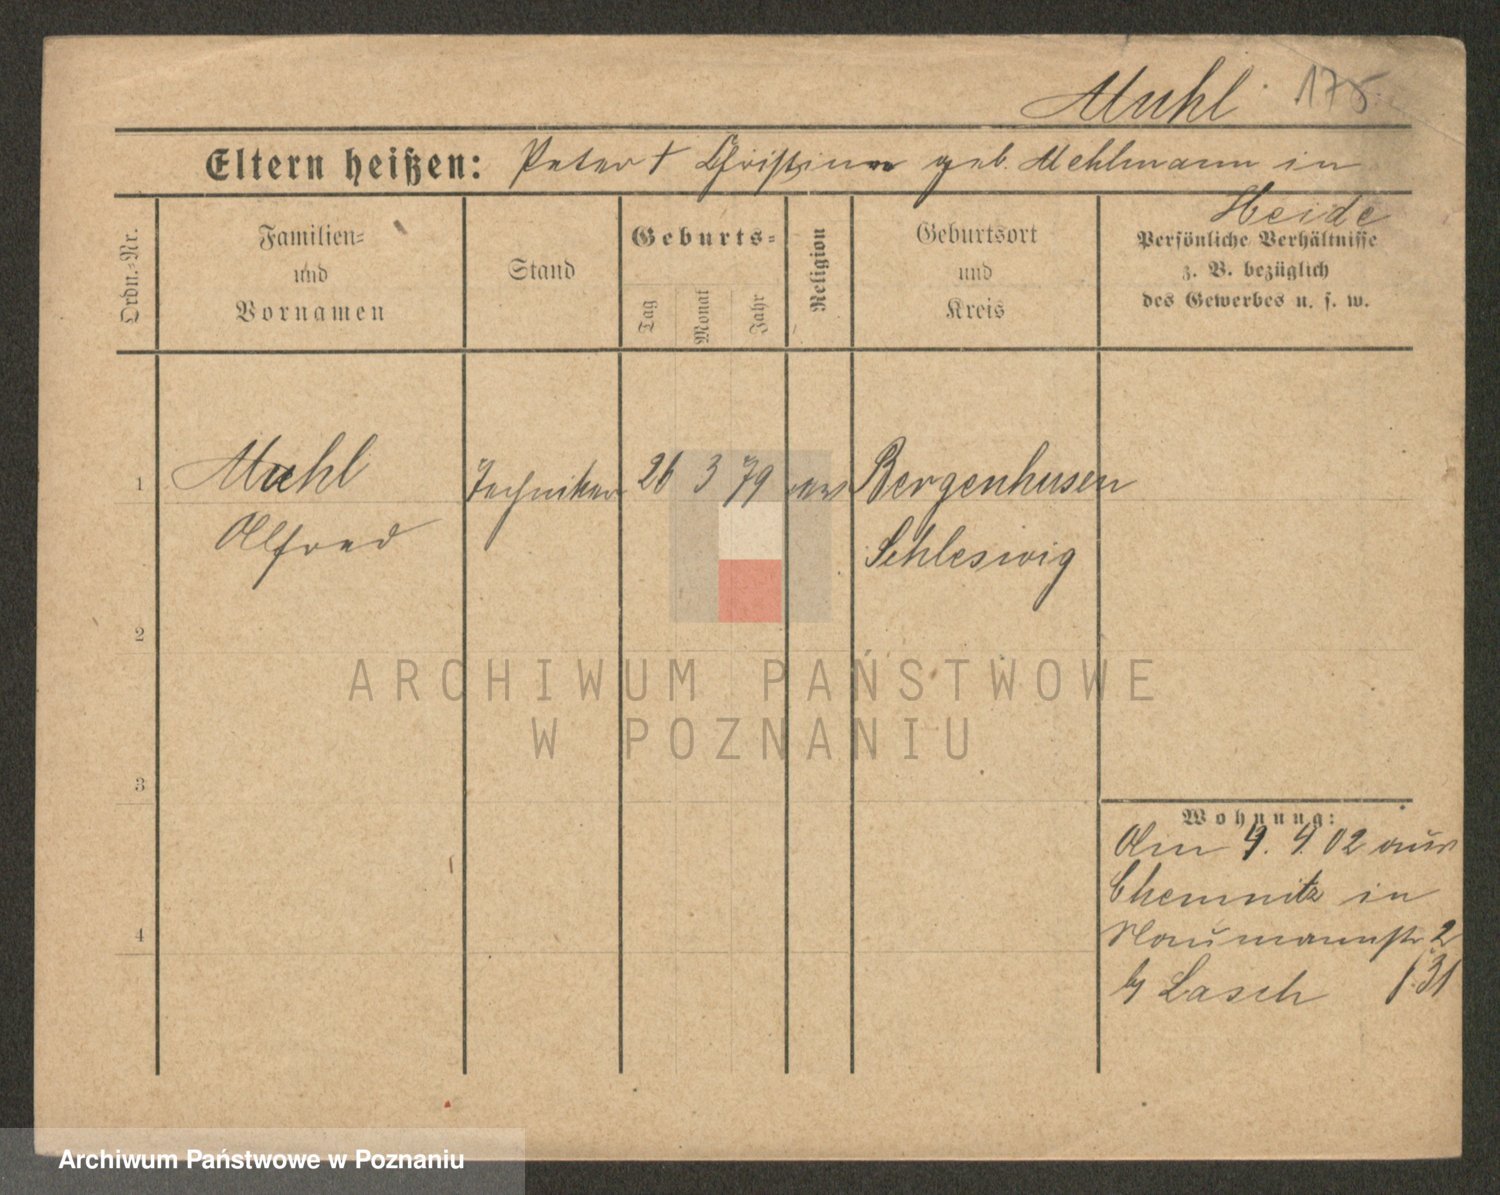 Muhl 175
Eltern heißen: Peter † Christine geb. Mehlmann in
Heide
Ordn.=Nr.
Familien=
und
Vornamen
Stand
Geburts=
Tag
Monat
Jahr
Religion
Geburtsort
und
Kreis
Persönliche Verhältnisse
z. B. bezüglich
des Gewerbes u. s. w.
1 Muhl Techniker 26 3 79 ev Bergenhusen
Alfred Schleswig
2
ARCHIWUM PAŃSTWOWE
W POZNANIU
3
Wohnung:
Am 4. 4. 02 aus
Chemnitz in
Naumannstr 2
4
by Lasch
Archiwum Państwowe w Poznaniu